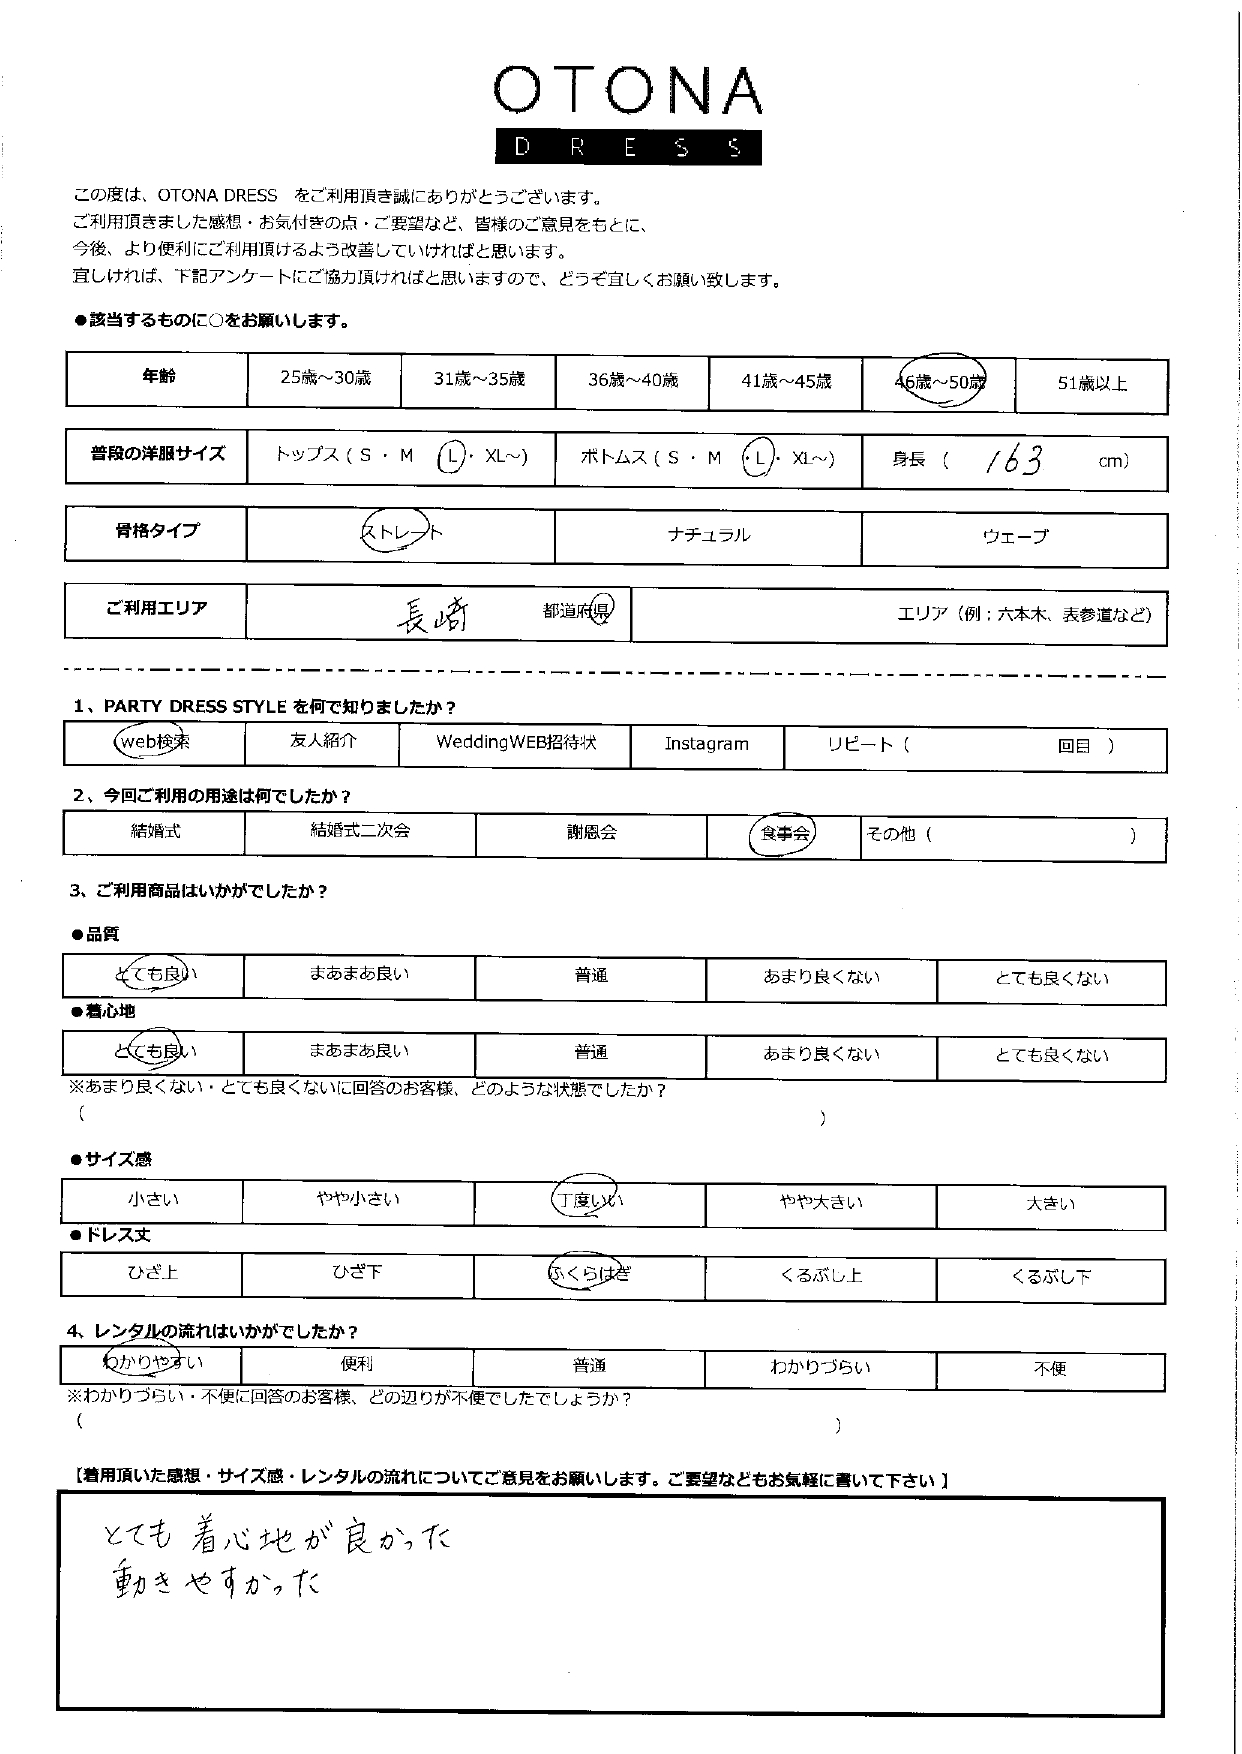 OTONA
DRESS
この度は、OTONA DRESS　をご利用頂き誠にありがとうございます。
ご利用頂きました感想・お気付きの点・ご要望など、皆様のご意見をもとに、
今後、より便利にご利用頂けるよう改善していければと思います。
宜しければ、下記アンケートにご協力頂ければと思いますので、どうぞ宜しくお願い致します。
●該当するものに○をお願いします。
年齢 25歳～30歳 31歳～35歳 36歳～40歳 41歳～45歳 46歳～50歳 51歳以上
普段の洋服サイズ トップス ( S ・ M ・ L ・ XL～) ボトムス ( S ・ M ・ L ・ XL～) 身長 ( 163 cm)
骨格タイプ ストレート ナチュラル ウェーブ
ご利用エリア 長崎 都道府県 エリア（例；六本木、表参道など）
1、PARTY DRESS STYLE を何で知りましたか？
web検索 友人紹介 WeddingWEB招待状 Instagram リピート ( 回目 )
2、今回ご利用の用途は何でしたか？
結婚式 結婚式二次会 謝恩会 食事会 その他 ( )
3、ご利用商品はいかがでしたか？
●品質
とても良い まあまあ良い 普通 あまり良くない とても良くない
●着心地
とても良い まあまあ良い 普通 あまり良くない とても良くない
※あまり良くない・とても良くないに回答のお客様、どのような状態でしたか？
( )
●サイズ感
小さい やや小さい 丁度いい やや大きい 大きい
●ドレス丈
ひざ上 ひざ下 ふくらはぎ くるぶし上 くるぶし下
4、レンタルの流れはいかがでしたか？
わかりやすい 便利 普通 わかりづらい 不便
※わかりづらい・不便に回答のお客様、どの辺りが不便でしたでしょうか？
( )
【着用頂いた感想・サイズ感・レンタルの流れについてご意見をお願いします。ご要望などもお気軽に書いて下さい 】
とても着心地が良かった
動きやすかった